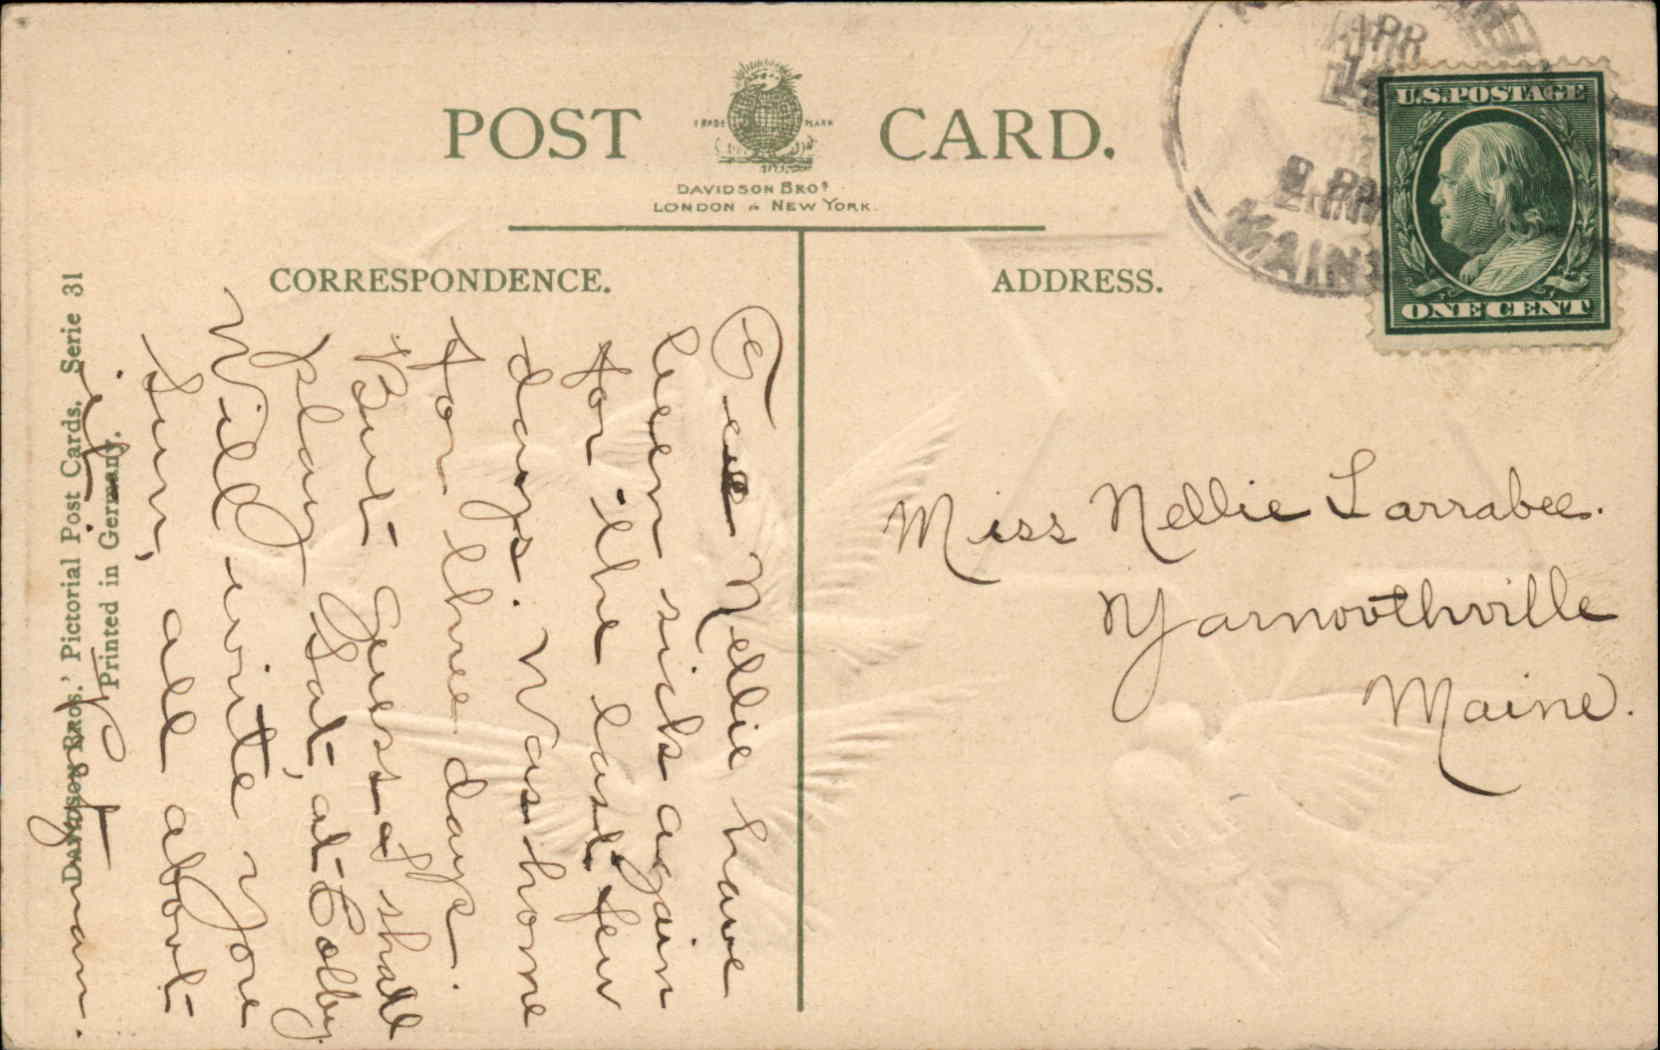 POST CARD.
TRADE MARK
DAVIDSON BROS
LONDON & NEW YORK.
CORRESPONDENCE.
ADDRESS.
U.S.POSTAGE
ONE CENT
APR
14
MAINE
Miss Nellie Larrabee.
Yarmouthville
Maine.
Dear Nellie have
been sick again
for the last few
days. Was home
for three days.
But Guess I shall
play Sat, at Colby.
Will write you
Sun, all about
it.
Lyman.
DAVIDSON BROS.' Pictorial Post Cards. Serie 31
Printed in Germany.